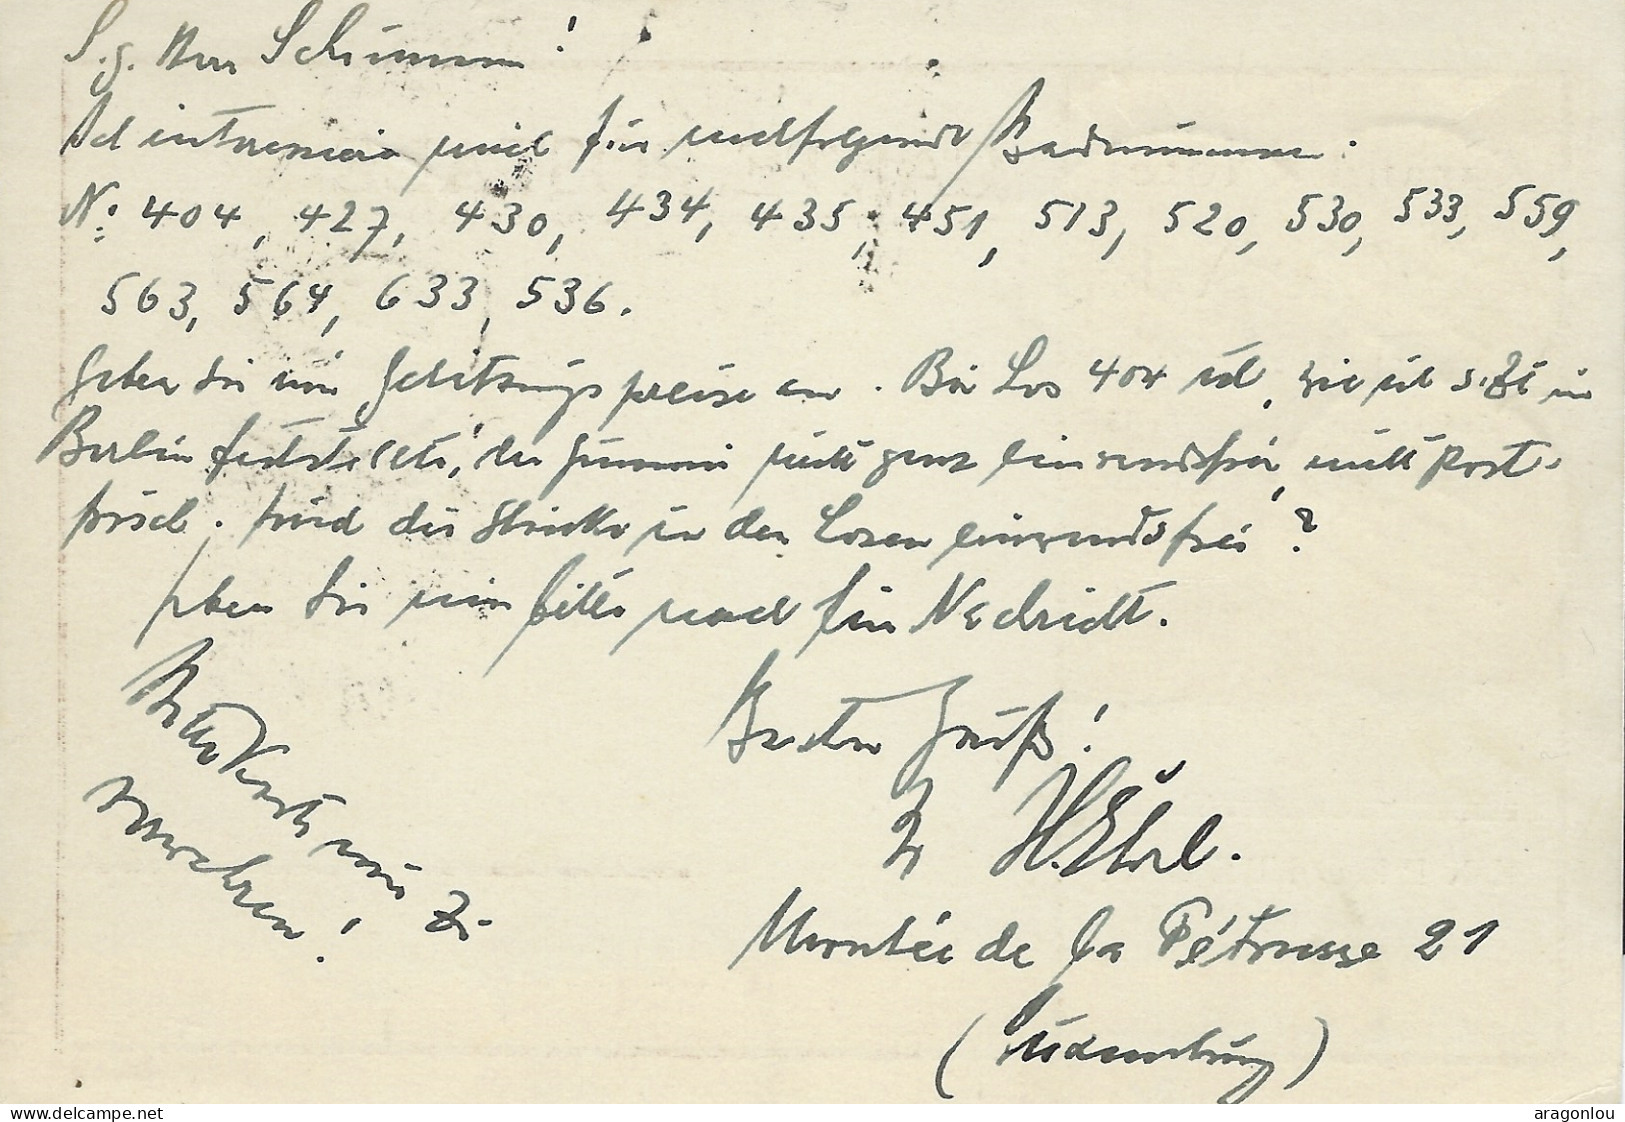 S.g. Herr Schumann!
Ich interessiere mich für nachfolgende
No: 404, 427, 430, 434, 435, 451, 513, 520, 530, 533, 559,
563, 564, 633, 536.
Geben Sie mir Schätzungspreise an. Bei Los 404 ist, wie ich s. Zt in
Berlin feststellte, der Gummi nicht ganz einwandfrei, nicht post-
frisch. Sind die Stücke in den Losen einwandfrei?
Geben Sie mir bitte noch für Nachricht.
Besten Gruß!
H. Ehrl.
Montée de la Pétrusse 21
(Luxemburg)
Bitte Karte mir zu
!
delcampe.net
aragonlou